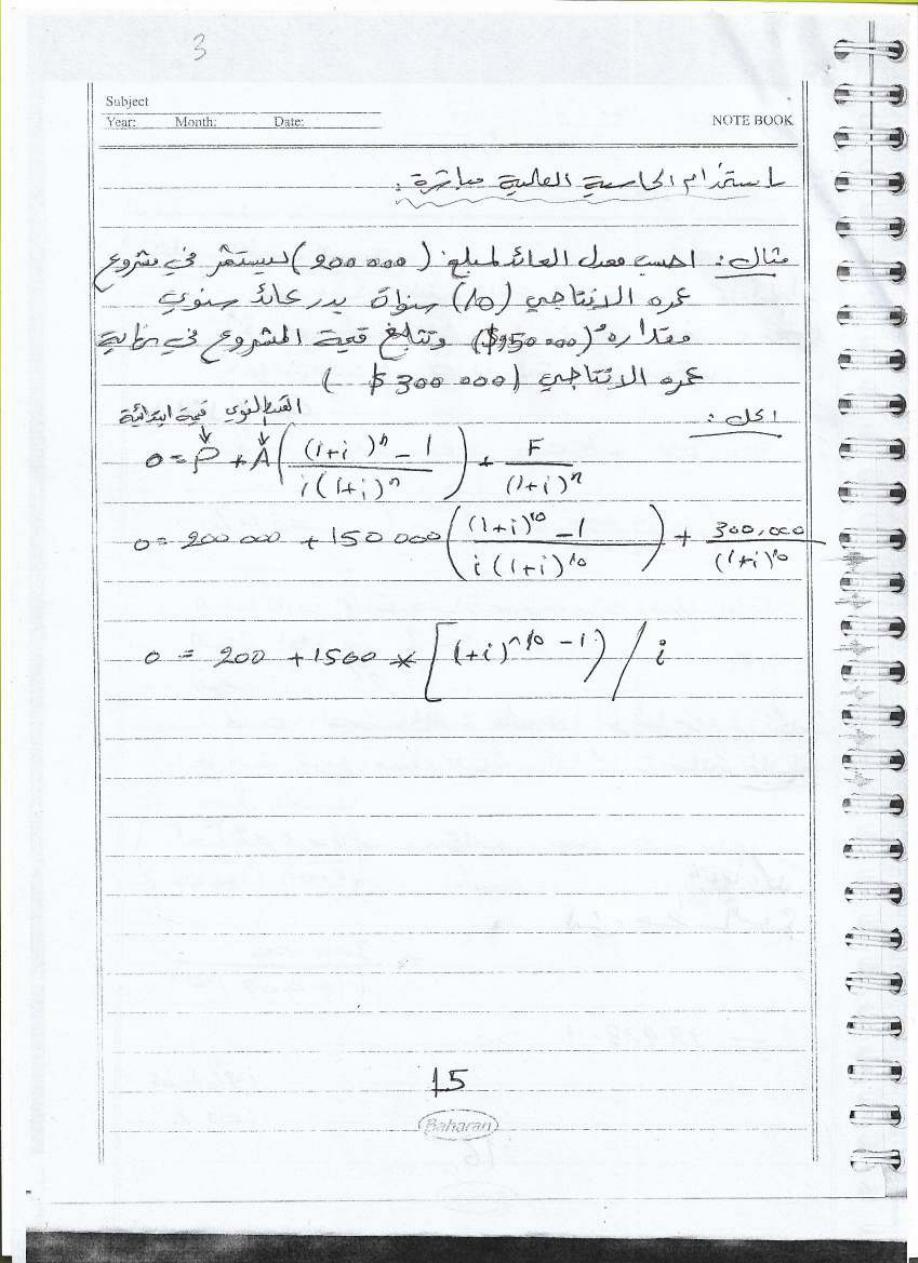 3
Subject
Year: Month: Date: NOTE BOOK
استخدام الحاسبة العالية مباشرة :
مثال : احسب معدل العائد لمبلغ (200 000) ليستثمر في مشروع
عمره الانتاجي (10) سنواة يدر عائد سنوي
مقداره ($150 000) وتتبلغ قيمة المشروع في نهاية
عمره الانتاجي (300 000 $)
الحل :
القسط السنوي قيمة ابتدائية
0 = P + A ( (1+i)^n - 1 / i(1+i)^n ) + F / (1+i)^n
0 = 200 000 + 150 000 ( (1+i)^10 - 1 / i(1+i)^10 ) + 300,000 / (1+i)^10
0 = 200 + 1500 * [ (1+i)^10 - 1) / i
15
Baharan